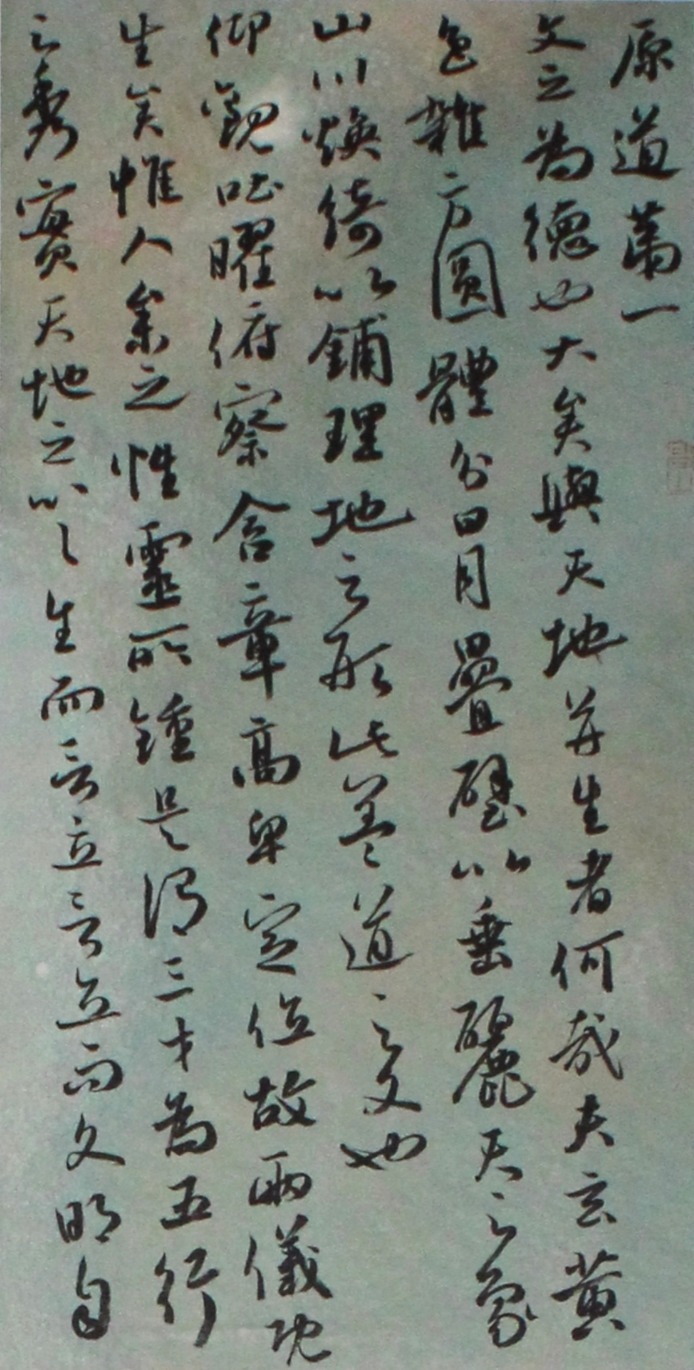 原道第一
文之為德也大矣與天地并生者何哉夫玄黃
色雜方圓體分日月疊璧以垂麗天之象
山川煥綺以鋪理地之形此蓋道之文也
仰觀吐曜俯察含章高卑定位故兩儀既
生矣惟人參之性靈所鍾是謂三才為五行
之秀實天地之心生而言立言立而文明自